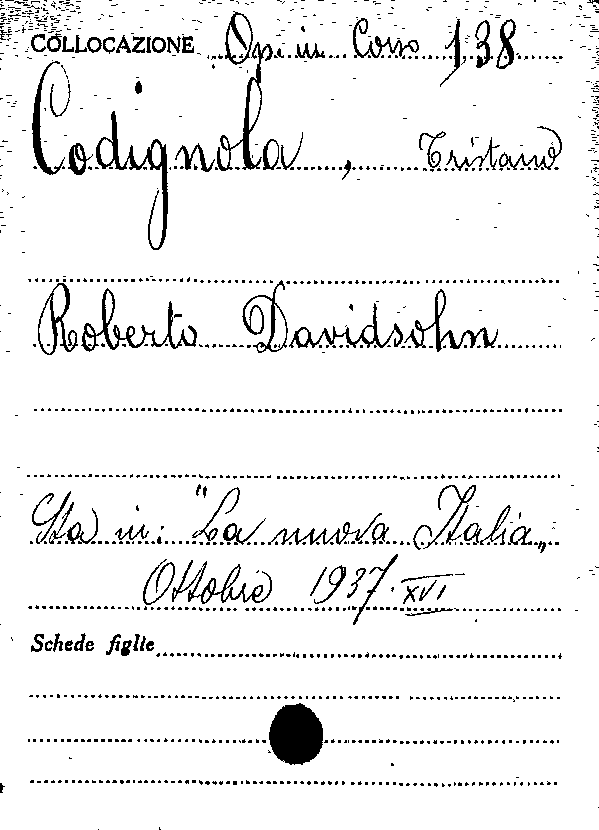 COLLOCAZIONE Op. in Corso 138
Codignola, Tristano
Roberto Davidsohn
Sta in: "La nuova Italia„
Ottobre 1937. XVI
Schede figlie